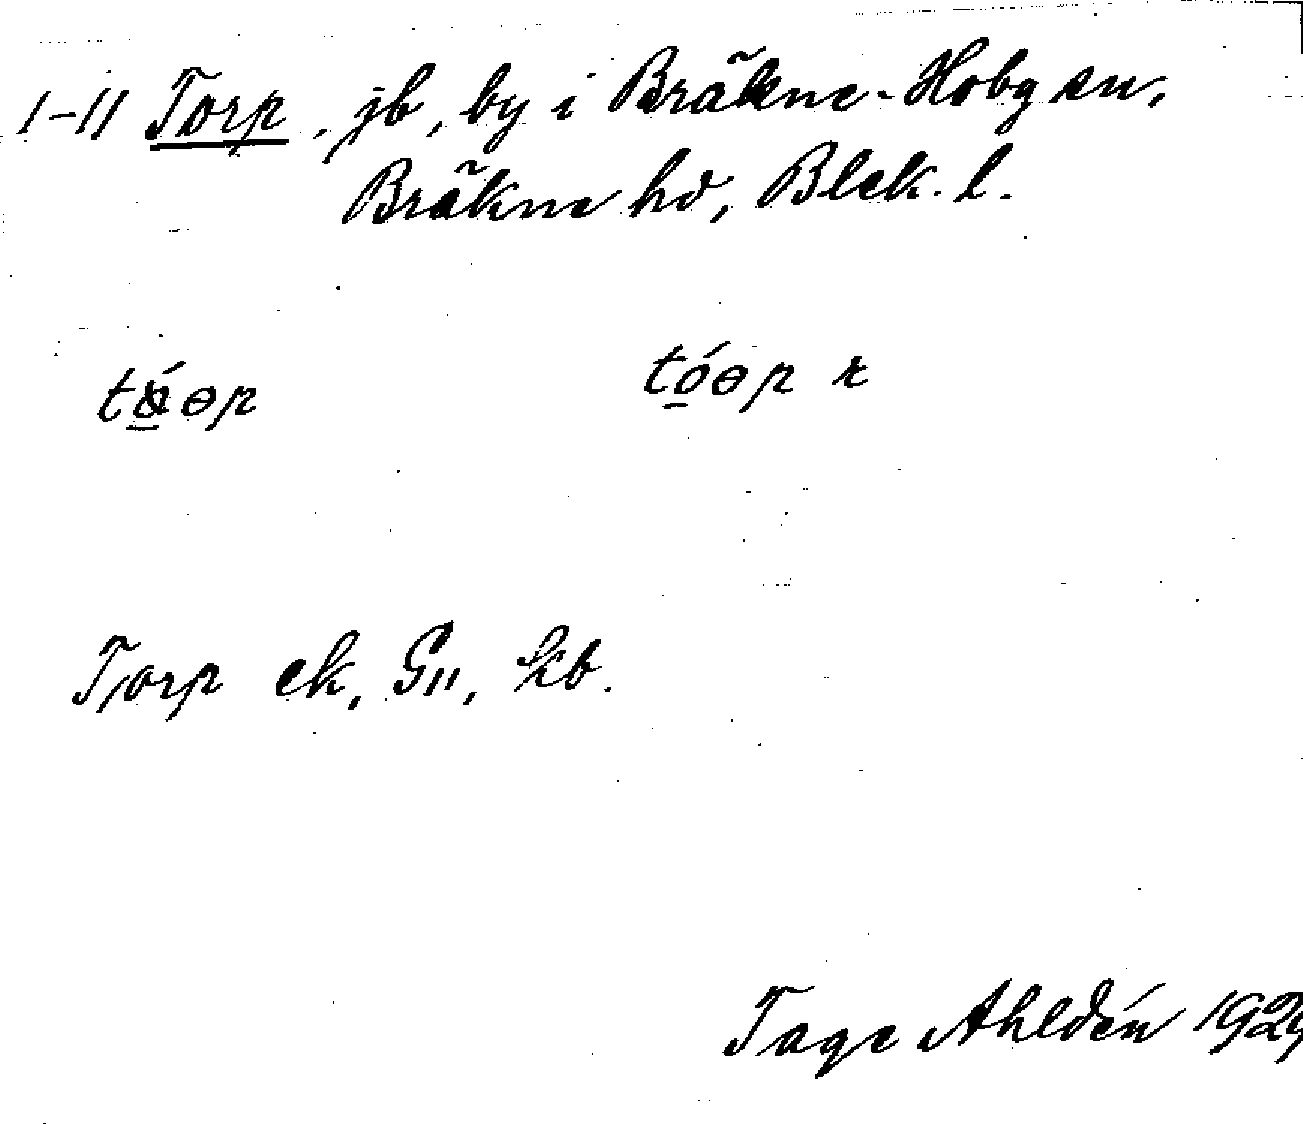 1-11 Torp, jb, by i Bräkne-Hoby sn,
Bräkne hd, Blek. l.
tɵ́ɵp tóɵp r
Torp ek, G11, kb.
Tage Ahldén 192